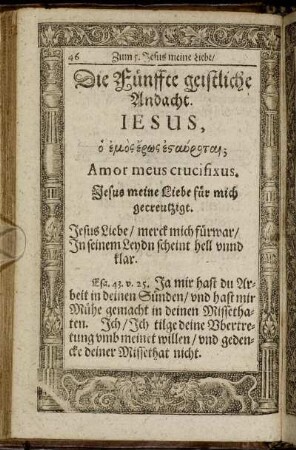 46 Zum 5. Jesus meine Liebe/
Die Fünffte geistliche
Andacht.
IESUS,
ὁ ἐμὸς ἔρως ἐσταύρωται;
Amor meus crucifixus.
Jesus meine Liebe für mich
gecreutzigt.
Jesus Liebe / merck mich fürwar/
In seinem Leydn scheint hell vnnd
klar.
Esa. 43. v. 25. Ja mir hast du Ar-
beit in deinen Sünden/ vnd hast mir
Mühe gemacht in deinen Missetha-
ten. Ich/ Ich tilge deine Vbertre-
tung vmb meinet willen/ vnd geden-
cke deiner Missethat nicht.